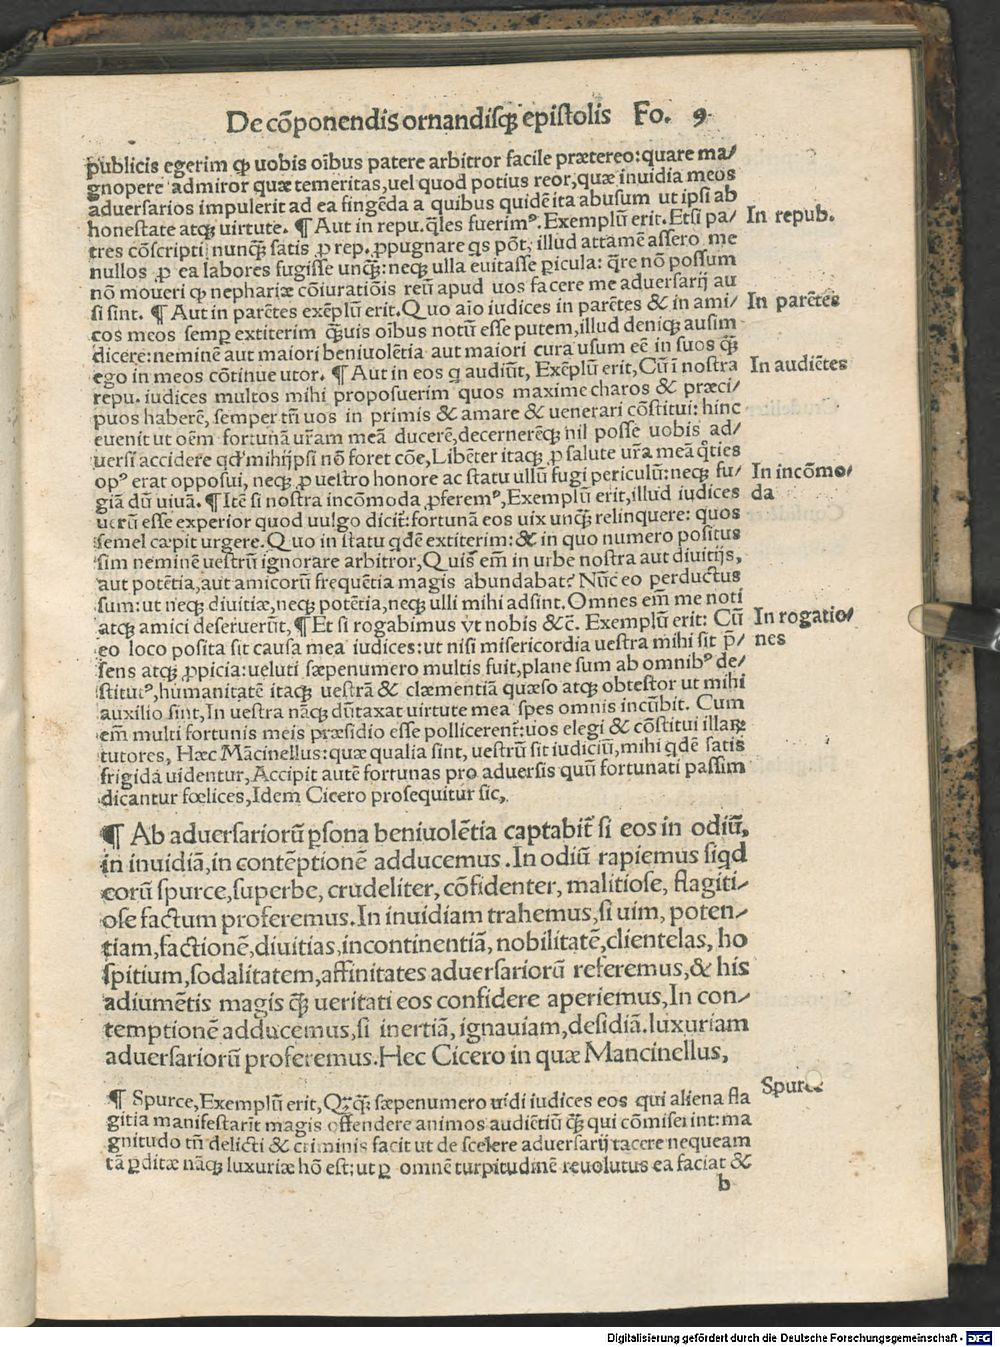 De cõponendis ornandisqꝫ epistolis Fo. 9
publicis egerim ꝙ uobis oĩbus patere arbitror facile prætereo: quare ma/
gnopere admiror quæ temeritas, uel quod potius reor, quæ inuidia meos
aduersarios impulerit ad ea fingẽda a quibus quidẽ ita abusum ut ipsi ab
honestate atqꝫ uirtute. ¶ Aut in repu. q̃les fuerimꝰ. Exemplũ erit. Etsi pa/
In repub.
tres cõscripti nunqꝫ̃ satis ꝓ rep. ꝓpugnare qs põt, illud attamẽ assero me
nullos ꝓ ea labores fugisse unqꝫ̃: neqꝫ ulla euitasse ꝑicula: q̃re nõ possum
nõ moueri ꝙ nephariæ cõiuratiõis reũ apud uos facere me aduersarij au
si sint. ¶ Aut in parẽtes exẽplũ erit. Quo aĩo iudices in parẽtes & in ami/
In parẽtes
cos meos semꝑ extiterim qꝫ̃uis oĩbus notũ esse putem, illud deniqꝫ ausim
dicere: neminẽ aut maiori beniuolẽtia aut maiori cura usum eẽ in suos qꝫ̃
ego in meos cõtinue utor. ¶ Aut in eos q audiũt, Exẽplũ erit, Cũ ĩ nostra
In audiẽtes
repu. iudices multos mihi proposuerim quos maxime charos & præci/
puos haberẽ, semper tñ uos in primis & amare & uenerari cõstitui: hinc
euenit ut oẽm fortunã ur̃am meã ducerẽ, decernerẽqꝫ nil posse uobis ad/
uersi accidere qđ mihijpsi nõ foret cõe, Libẽter itaqꝫ ꝓ salute ur̃a mea q̃ties
opꝰ erat opposui, neqꝫ ꝓ uestro honore ac statu ullũ fugi periculũ: neqꝫ fu/
In incõmo/
da
giã dũ uiuã. ¶ Itẽ si nostra incõmoda ꝓferemꝰ, Exemplũ erit, illud iudices
uerũ esse experior quod uulgo dicit̃: fortunã eos uix unqꝫ̃ relinquere: quos
semel cæpit urgere. Quo in statu qdẽ extiterim: & in quo numero positus
sim neminẽ uestrũ ignorare arbitror, Quis em̃ in urbe nostra aut diuitijs,
aut potẽtia, aut amicorũ frequẽtia magis abundabat? Nũc eo perductus
sum: ut neqꝫ diuitiæ, neqꝫ potẽtia, neqꝫ ulli mihi adsint. Omnes em̃ me noti
atqꝫ amici deseruerũt, ¶ Et si rogabimus vt nobis &c̃. Exemplũ erit: Cũ
In rogatio/
nes
eo loco posita sit causa mea iudices: ut nisi misericordia uestra mihi sit p̃/
sens atqꝫ ꝓpicia: ueluti sæpenumero multis fuit, plane sum ab omnibꝰ de/
stitutꝰ, humanitatẽ itaqꝫ uestrã & clæmentiã quæso atqꝫ obtestor ut mihi
auxilio sint, In uestra nãqꝫ dũtaxat uirtute mea spes omnis incũbit. Cum
em̃ multi fortunis meis præsidio esse pollicerent̃: uos elegi & cõstitui illaꝝ
tutores, Hæc Mãcinellus: quæ qualia sint, uestrũ sit iudiciũ, mihi qdẽ satis
frigida uidentur, Accipit autẽ fortunas pro aduersis quũ fortunati passim
dicantur fœlices, Idem Cicero prosequitur sic,
¶ Ab aduersariorũ ꝑsona beniuolẽtia captabit̃ si eos in odiũ,
in inuidiã, in contẽptionẽ adducemus. In odiũ rapiemus siqd
eorũ spurce, superbe, crudeliter, cõfidenter, malitiose, flagiti/
ose factum proferemus. In inuidiam trahemus, si uim, poten/
tiam, factionẽ, diuitias, incontinentiã, nobilitatẽ, clientelas, ho
spitium, sodalitatem, affinitates aduersariorũ referemus, & his
adiumẽtis magis qꝫ̃ ueritati eos confidere aperiemus, In con/
temptionẽ adducemus, si inertiã, ignauiam, desidiã. luxuriam
aduersariorũ proferemus. Hec Cicero in quæ Mancinellus,
Spurce
¶ Spurce, Exemplũ erit, Qꝫqꝫ̃ sæpenumero uidi iudices eos qui aliena fla
gitia manifestarit magis offendere animos audiẽtiũ qꝫ̃ qui cõmiseĩnt: ma
gnitudo tñ delicti & criminis facit ut de scelere aduersarij tacere nequeam
tã ꝑditæ nãqꝫ luxuriæ hõ est: ut ꝑ omnẽ turpitudinẽ reuolutus ea faciat &
b
Digitalisierung gefördert durch die Deutsche Forschungsgemeinschaft - DFG